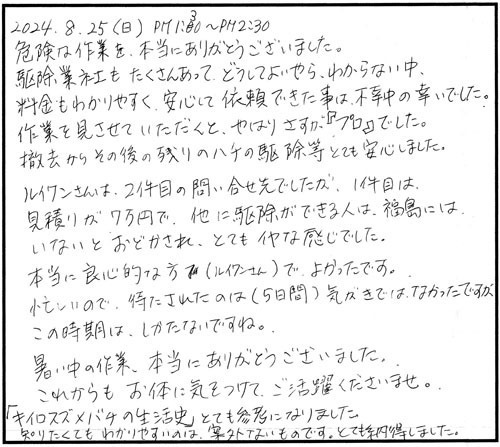 2024.8.25(日) PM1:30~PM2:30
危険な作業を、本当にありがとうございました。
駆除業社もたくさんあって、どうしてよいやら、わからない中、
料金もわかりやすく、安心して依頼できた事は、不幸中の幸いでした。
作業を見させていただくと、やはりさすが『プロ』でした。
撤去からその後の残りのハチの駆除等とても安心しました。
ルイワンさんは、2件目の問い合せ先でしたが、1件目は、
見積りが7万円で、他に駆除ができる人は、福島には
いないとおどかされ、とてもイヤな感じでした。
本当に良心的な方(ルイワンさん)で、よかったです。
忙しいので、待たされたのは(5日間)気がきではなかったですが、
この時期は、しかたないですね。
暑い中の作業、本当にありがとうございました。
これからもお体に気をつけて、ご活躍くださいませ。
「キイロスズメバチの生活史」とても参考になりました。
知りたくてもわかりやすいのは、案外ないものです。とても納得しました。